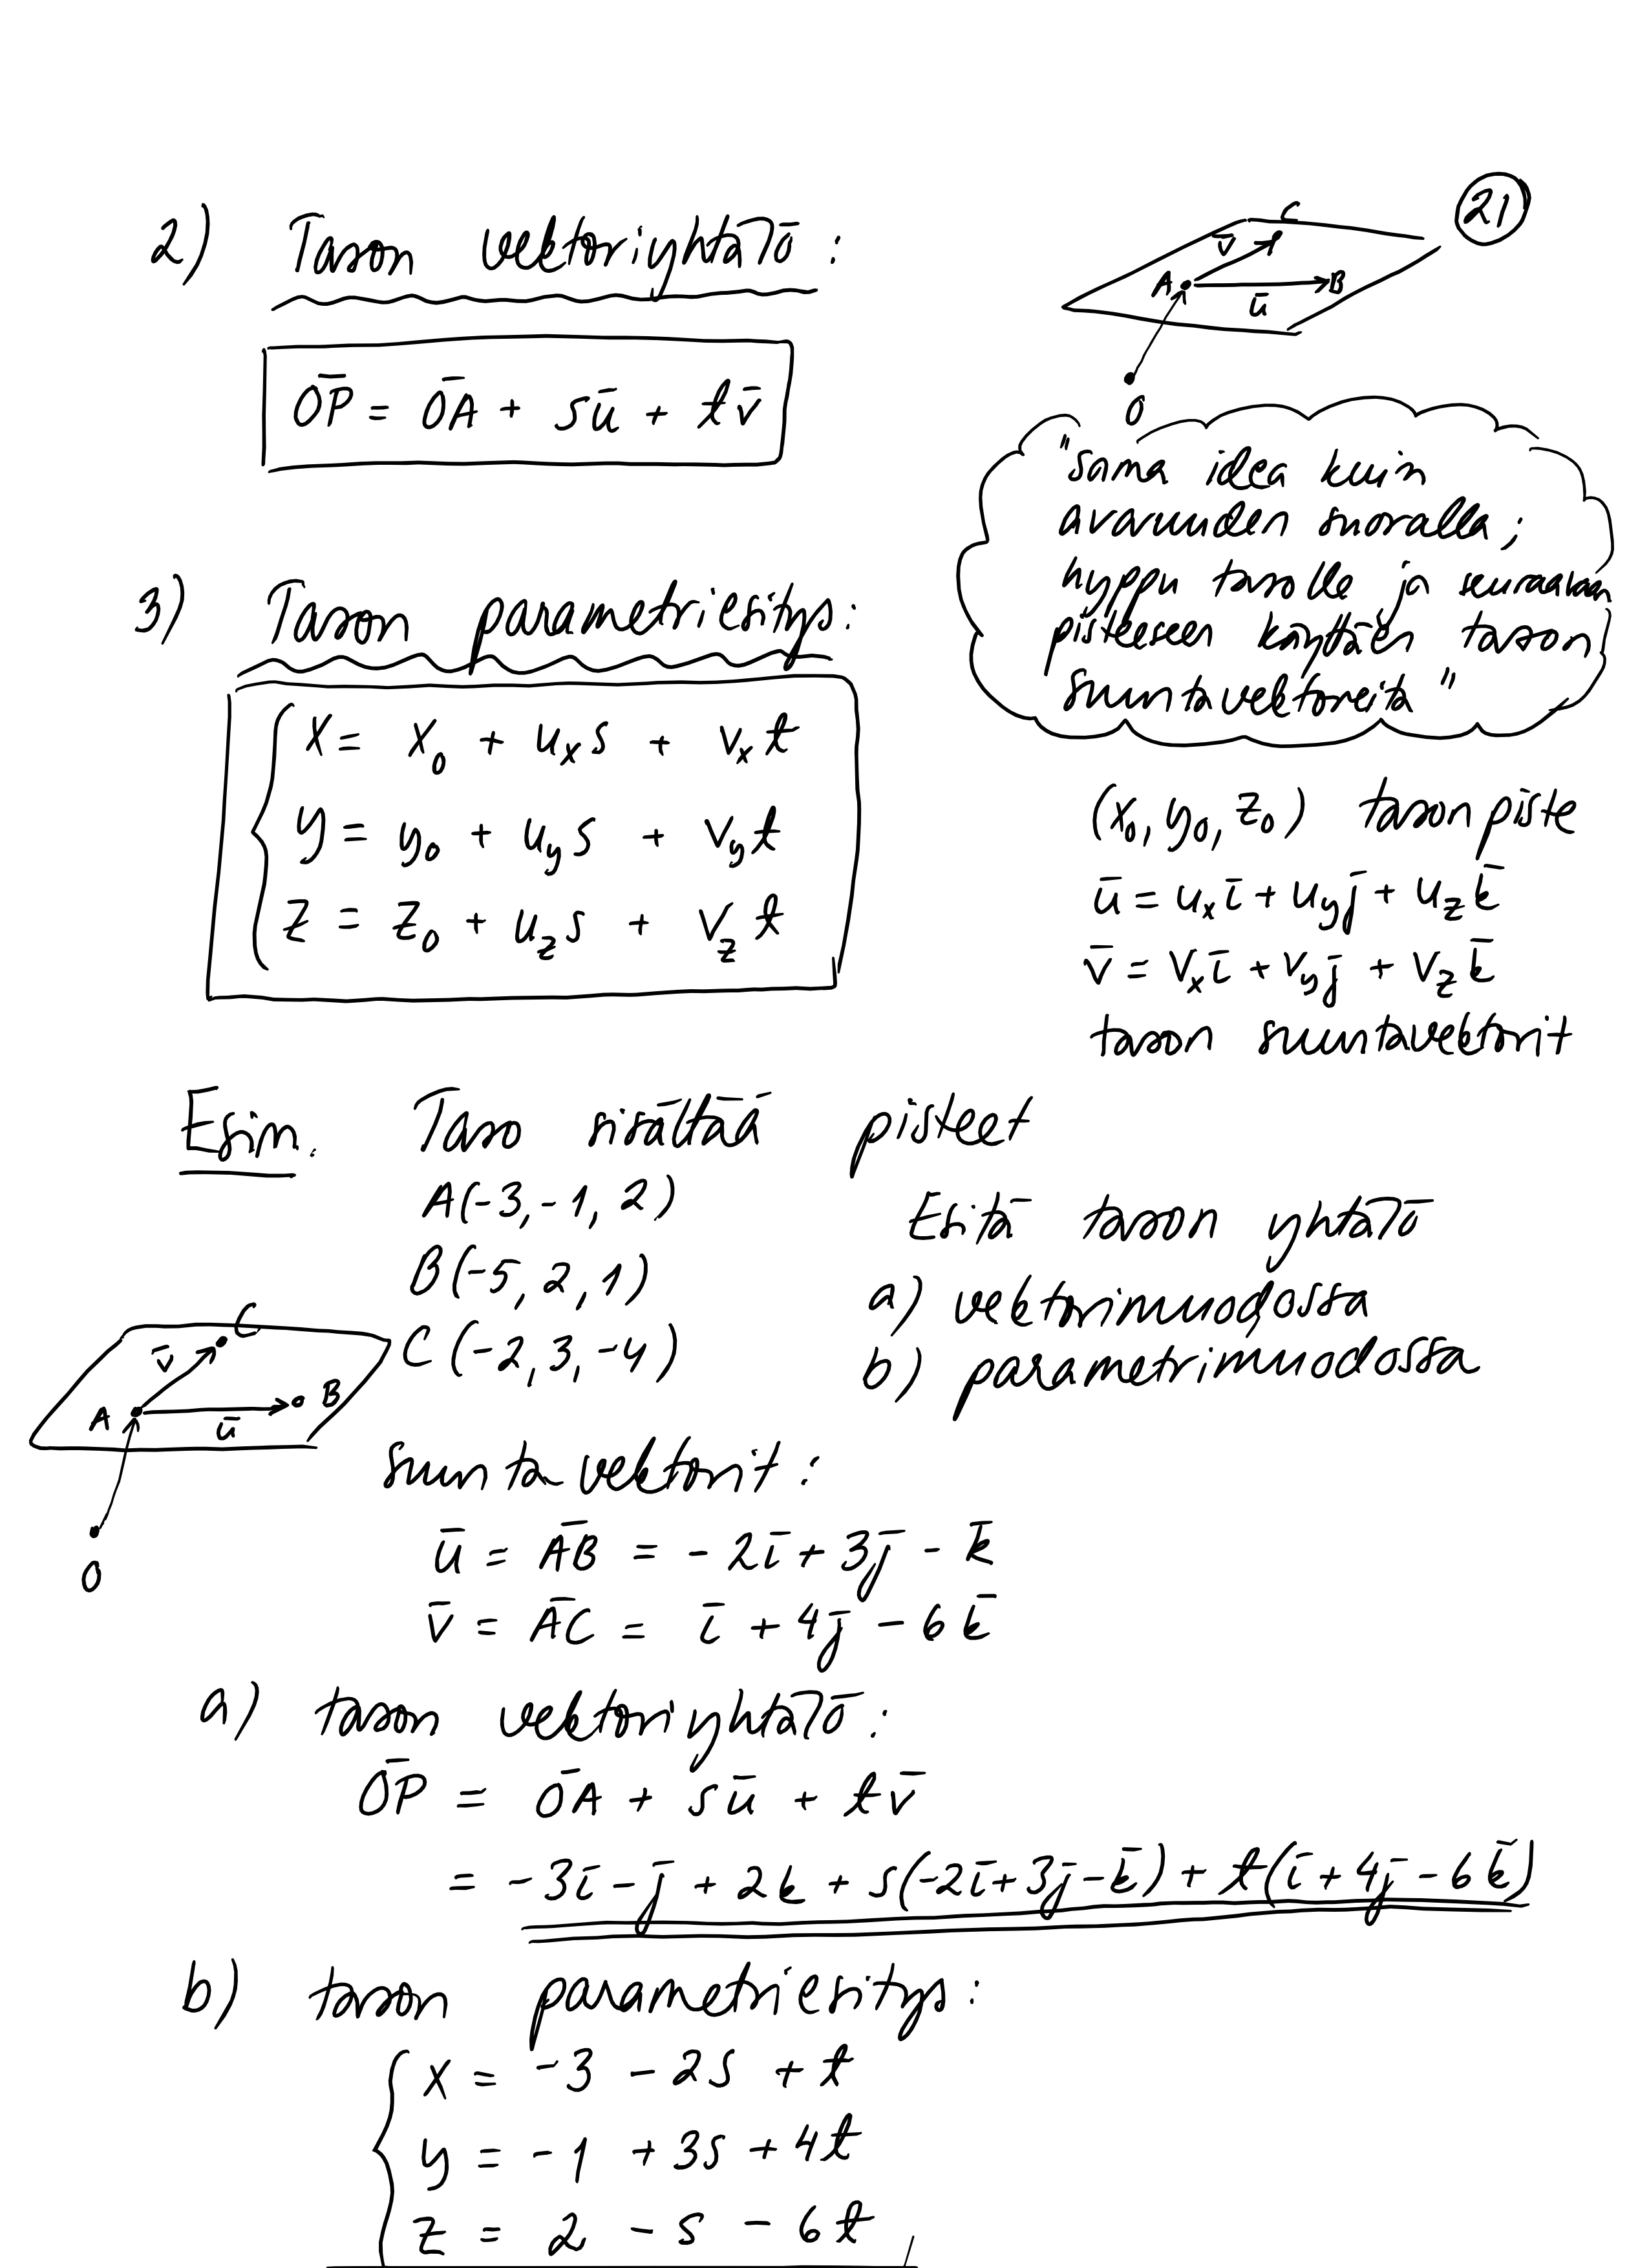 21
2) Tason vektoriyhtälö :
C
v̄
A
B
ū
O
O̅P̅ = O̅A̅ + sū + tv̄
"sama idea kuin
avaruuden suoralla ;
hyppy tasolle ja seuraavaan
pisteeseen käyttäen tason
suuntavektoreita"
3) Tason parametriesitys :
x = x₀ + uₓs + vₓt
y = y₀ + u_y s + v_y t
z = z₀ + u_z s + v_z t
(x₀, y₀, z₀) tason piste
ū = uₓ ī + u_y j̄ + u_z k̄
v̄ = vₓ ī + v_y j̄ + v_z k̄
tason suuntavektorit
Esim. Taso sisältää pisteet
A(-3, -1, 2)
B(-5, 2, 1)
C(-2, 3, -4)
Esitä tason yhtälö
a) vektorimuodossa
b) parametrimuodossa
C
v̄
A
B
ū
O
suuntavektorit :
ū = A̅B̅ = -2ī + 3j̄ - k̄
v̄ = A̅C̅ = ī + 4j̄ - 6k̄
a) tason vektoriyhtälö :
O̅P̅ = O̅A̅ + sū + tv̄
= -3ī - j̄ + 2k + s(-2ī + 3j̄ - k̄) + t(ī + 4j̄ - 6k̄)
b) tason parametriesitys :
x = -3 - 2s + t
y = -1 + 3s + 4t
z = 2 - s - 6t